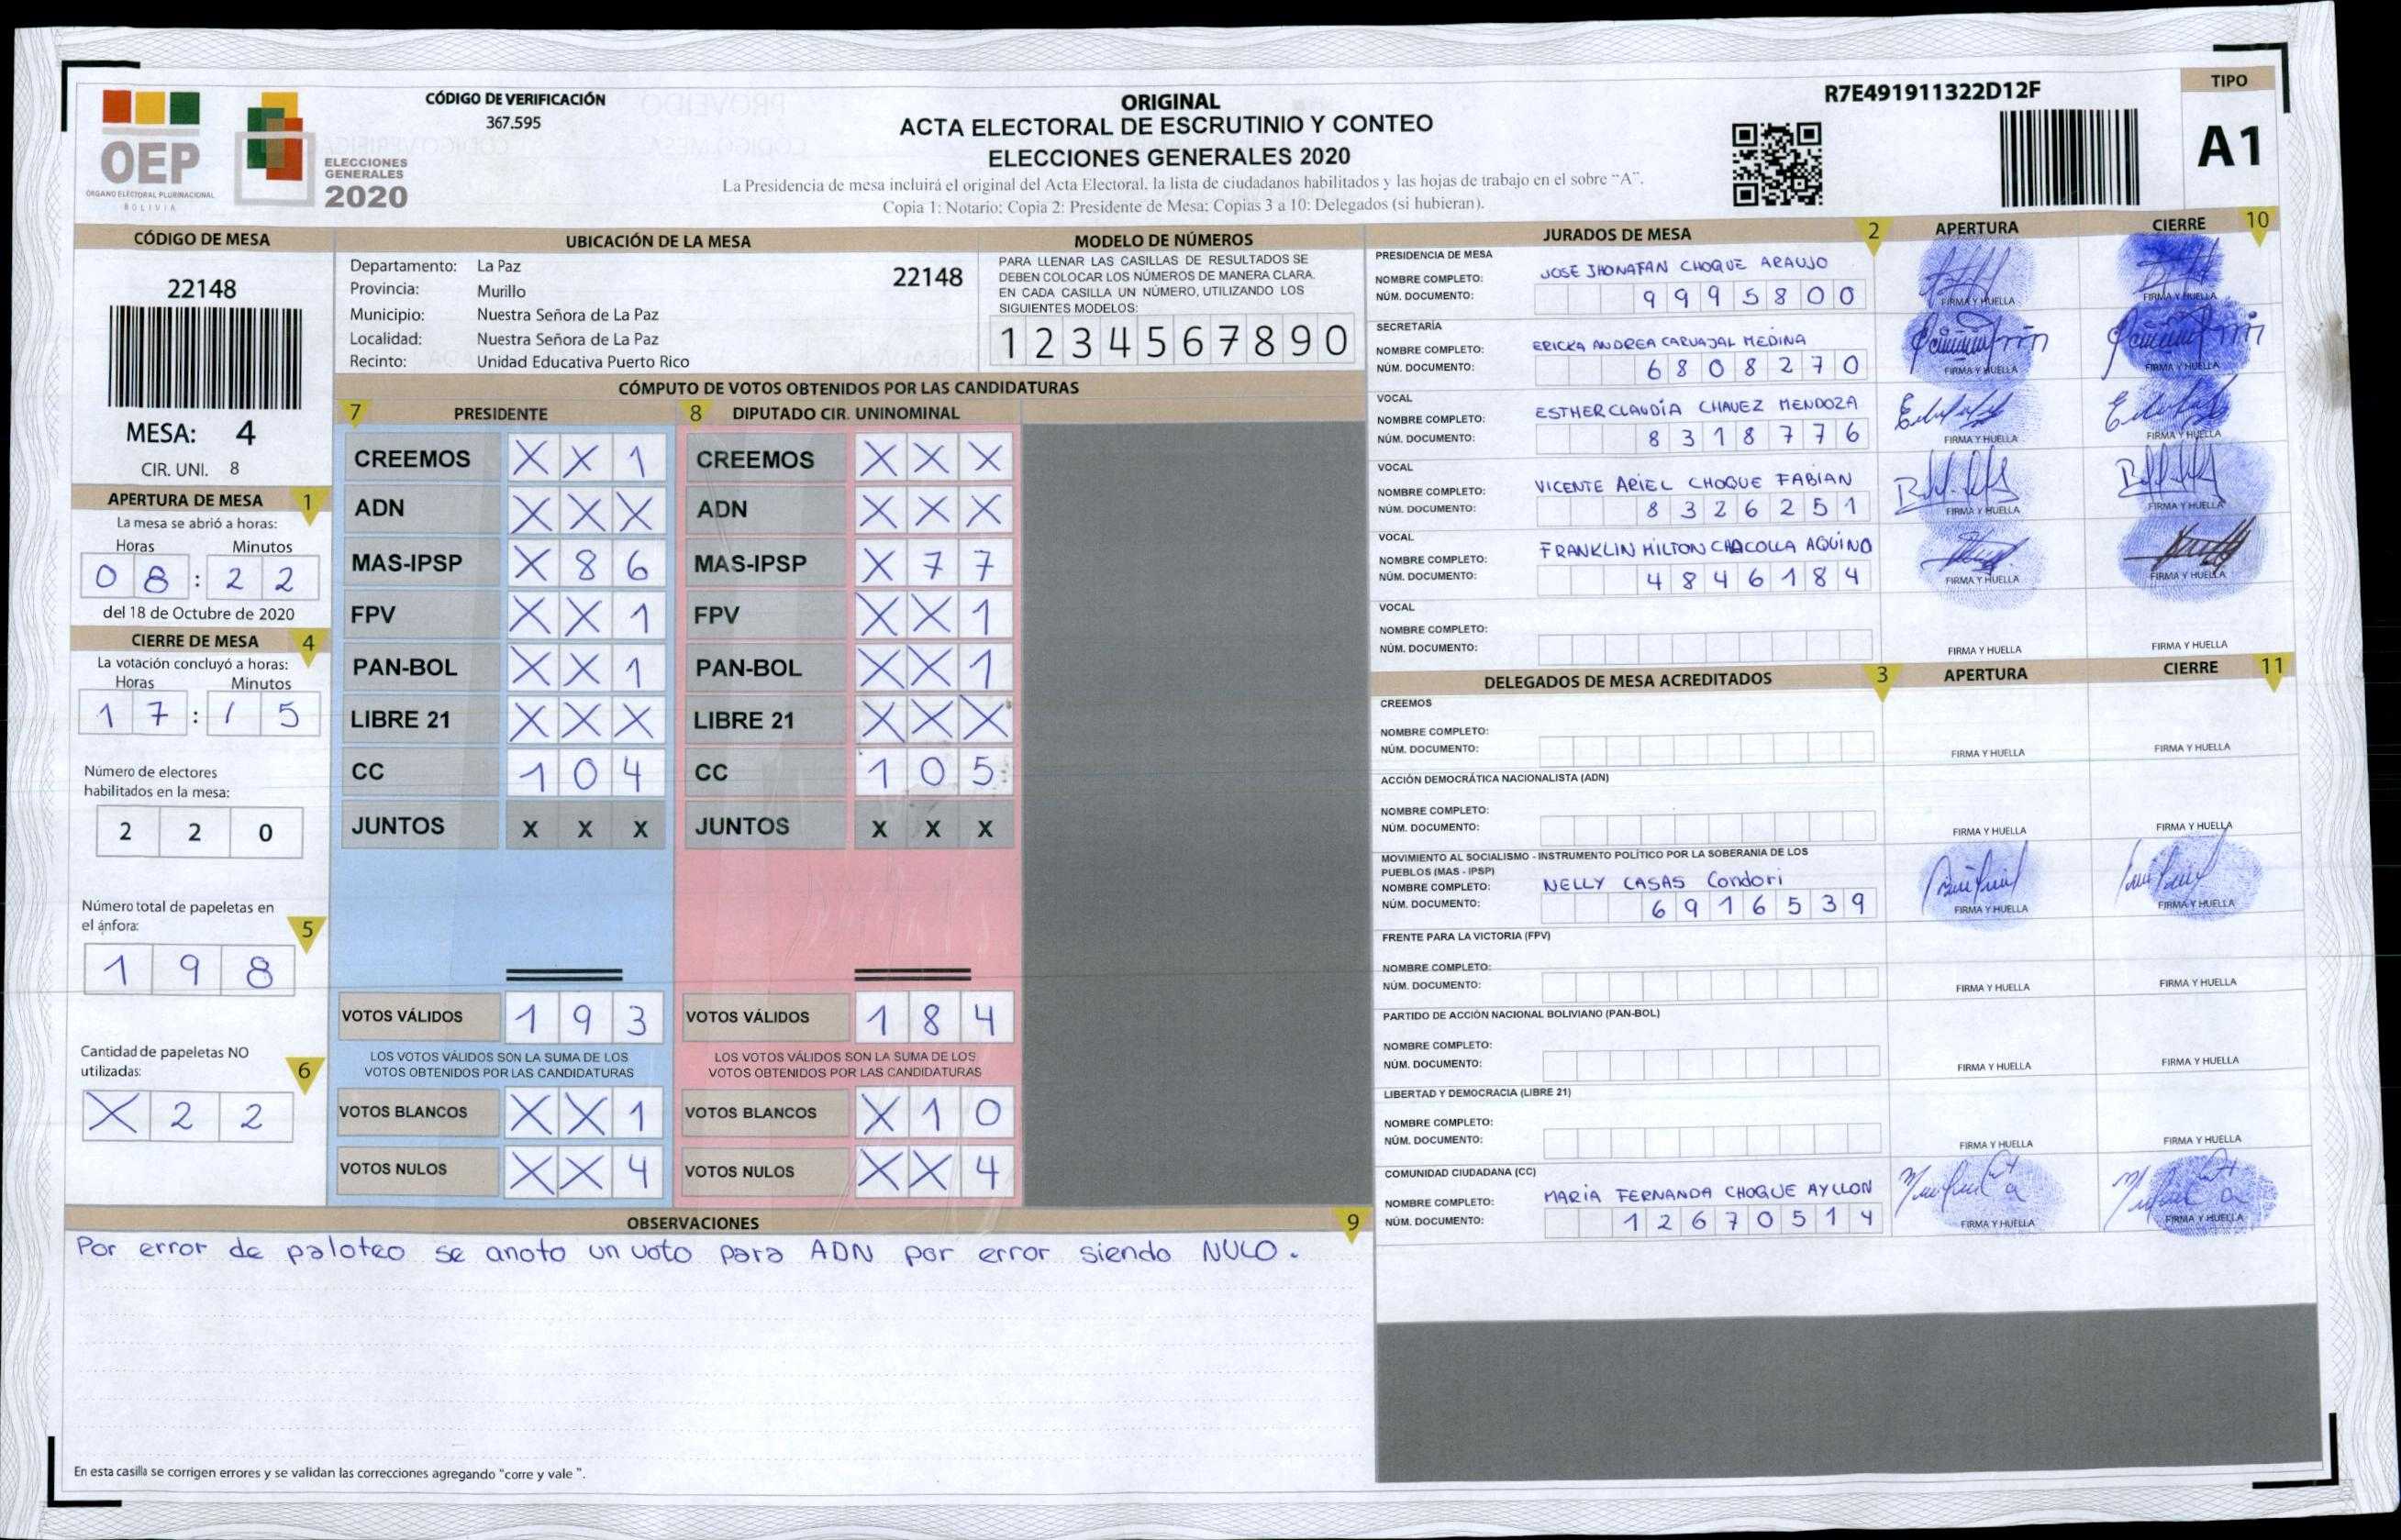 OEP
ÓRGANO ELECTORAL PLURINACIONAL
BOLIVIA
ELECCIONES
GENERALES
2020
CÓDIGO DE VERIFICACIÓN
367.595
ORIGINAL
ACTA ELECTORAL DE ESCRUTINIO Y CONTEO
ELECCIONES GENERALES 2020
La Presidencia de mesa incluirá el original del Acta Electoral, la lista de ciudadanos habilitados y las hojas de trabajo en el sobre "A".
Copia 1: Notario; Copia 2: Presidente de Mesa; Copias 3 a 10: Delegados (si hubieran).
R7E491911322D12F
TIPO
A1
CÓDIGO DE MESA
22148
MESA: 4
CIR. UNI. 8
APERTURA DE MESA 1
La mesa se abrió a horas:
Horas Minutos
0 8 : 2 2
del 18 de Octubre de 2020
CIERRE DE MESA 4
La votación concluyó a horas:
Horas Minutos
1 7 : 1 5
Número de electores
habilitados en la mesa:
2 2 0
Número total de papeletas en
el ánfora: 5
1 9 8
Cantidad de papeletas NO
utilizadas: 6
X 2 2
UBICACIÓN DE LA MESA
Departamento: La Paz 22148
Provincia: Murillo
Municipio: Nuestra Señora de La Paz
Localidad: Nuestra Señora de La Paz
Recinto: Unidad Educativa Puerto Rico
MODELO DE NÚMEROS
PARA LLENAR LAS CASILLAS DE RESULTADOS SE
DEBEN COLOCAR LOS NÚMEROS DE MANERA CLARA.
EN CADA CASILLA UN NÚMERO, UTILIZANDO LOS
SIGUIENTES MODELOS:
1 2 3 4 5 6 7 8 9 0
CÓMPUTO DE VOTOS OBTENIDOS POR LAS CANDIDATURAS
7 PRESIDENTE 8 DIPUTADO CIR. UNINOMINAL
CREEMOS X X 1 CREEMOS X X X
ADN X X X ADN X X X
MAS-IPSP X 8 6 MAS-IPSP X 7 7
FPV X X 1 FPV X X 1
PAN-BOL X X 1 PAN-BOL X X 1
LIBRE 21 X X X LIBRE 21 X X X
CC 1 0 4 CC 1 0 5
JUNTOS X X X JUNTOS X X X
VOTOS VÁLIDOS 1 9 3 VOTOS VÁLIDOS 1 8 4
LOS VOTOS VÁLIDOS SON LA SUMA DE LOS LOS VOTOS VÁLIDOS SON LA SUMA DE LOS
VOTOS OBTENIDOS POR LAS CANDIDATURAS VOTOS OBTENIDOS POR LAS CANDIDATURAS
VOTOS BLANCOS X X 1 VOTOS BLANCOS X 1 0
VOTOS NULOS X X 4 VOTOS NULOS X X 4
OBSERVACIONES 9
Por error de paloteo se anoto un voto para ADN por error siendo NULO.
En esta casilla se corrigen errores y se validan las correcciones agregando "corre y vale ".
JURADOS DE MESA 2 APERTURA CIERRE 10
PRESIDENCIA DE MESA
NOMBRE COMPLETO: JOSE JHONATAN CHOQUE ARAUJO
NÚM. DOCUMENTO: 9 9 9 5 8 0 0 FIRMA Y HUELLA FIRMA Y HUELLA
SECRETARÍA
NOMBRE COMPLETO: ERICKA ANDREA CARVAJAL MEDINA
NÚM. DOCUMENTO: 6 8 0 8 2 7 0 FIRMA Y HUELLA FIRMA Y HUELLA
VOCAL
NOMBRE COMPLETO: ESTHER CLAUDÍA CHAVEZ MENDOZA
NÚM. DOCUMENTO: 8 3 1 8 7 7 6 FIRMA Y HUELLA FIRMA Y HUELLA
VOCAL
NOMBRE COMPLETO: VICENTE ARIEL CHOQUE FABIAN
NÚM. DOCUMENTO: 8 3 2 6 2 5 1 FIRMA Y HUELLA FIRMA Y HUELLA
VOCAL
NOMBRE COMPLETO: FRANKLIN MILTON CHACOLLA AQUINO
NÚM. DOCUMENTO: 4 8 4 6 1 8 4 FIRMA Y HUELLA FIRMA Y HUELLA
VOCAL
NOMBRE COMPLETO:
NÚM. DOCUMENTO: FIRMA Y HUELLA FIRMA Y HUELLA
DELEGADOS DE MESA ACREDITADOS 3 APERTURA CIERRE 11
CREEMOS
NOMBRE COMPLETO:
NÚM. DOCUMENTO: FIRMA Y HUELLA FIRMA Y HUELLA
ACCIÓN DEMOCRÁTICA NACIONALISTA (ADN)
NOMBRE COMPLETO:
NÚM. DOCUMENTO: FIRMA Y HUELLA FIRMA Y HUELLA
MOVIMIENTO AL SOCIALISMO - INSTRUMENTO POLÍTICO POR LA SOBERANIA DE LOS
PUEBLOS (MAS - IPSP)
NOMBRE COMPLETO: NELLY CASAS Condori
NÚM. DOCUMENTO: 6 9 1 6 5 3 9 FIRMA Y HUELLA FIRMA Y HUELLA
FRENTE PARA LA VICTORIA (FPV)
NOMBRE COMPLETO:
NÚM. DOCUMENTO: FIRMA Y HUELLA FIRMA Y HUELLA
PARTIDO DE ACCIÓN NACIONAL BOLIVIANO (PAN-BOL)
NOMBRE COMPLETO:
NÚM. DOCUMENTO: FIRMA Y HUELLA FIRMA Y HUELLA
LIBERTAD Y DEMOCRACIA (LIBRE 21)
NOMBRE COMPLETO:
NÚM. DOCUMENTO: FIRMA Y HUELLA FIRMA Y HUELLA
COMUNIDAD CIUDADANA (CC)
NOMBRE COMPLETO: MARIA FERNANDA CHOQUE AYLLON
NÚM. DOCUMENTO: 1 2 6 7 0 5 1 4 FIRMA Y HUELLA FIRMA Y HUELLA